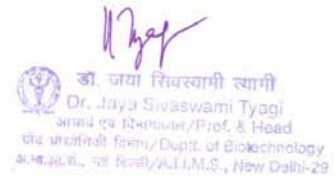 डॉ. जया सिवस्वामी त्यागी
Dr. Jaya Sivaswami Tyagi
आचार्य एवं विभागाध्यक्ष/Prof. & Head
जैव प्रौद्योगिकी विभाग/Deptt. of Biotechnology
अ.भा.आ.सं., नई दिल्ली/A.I.I.M.S., New Delhi-29